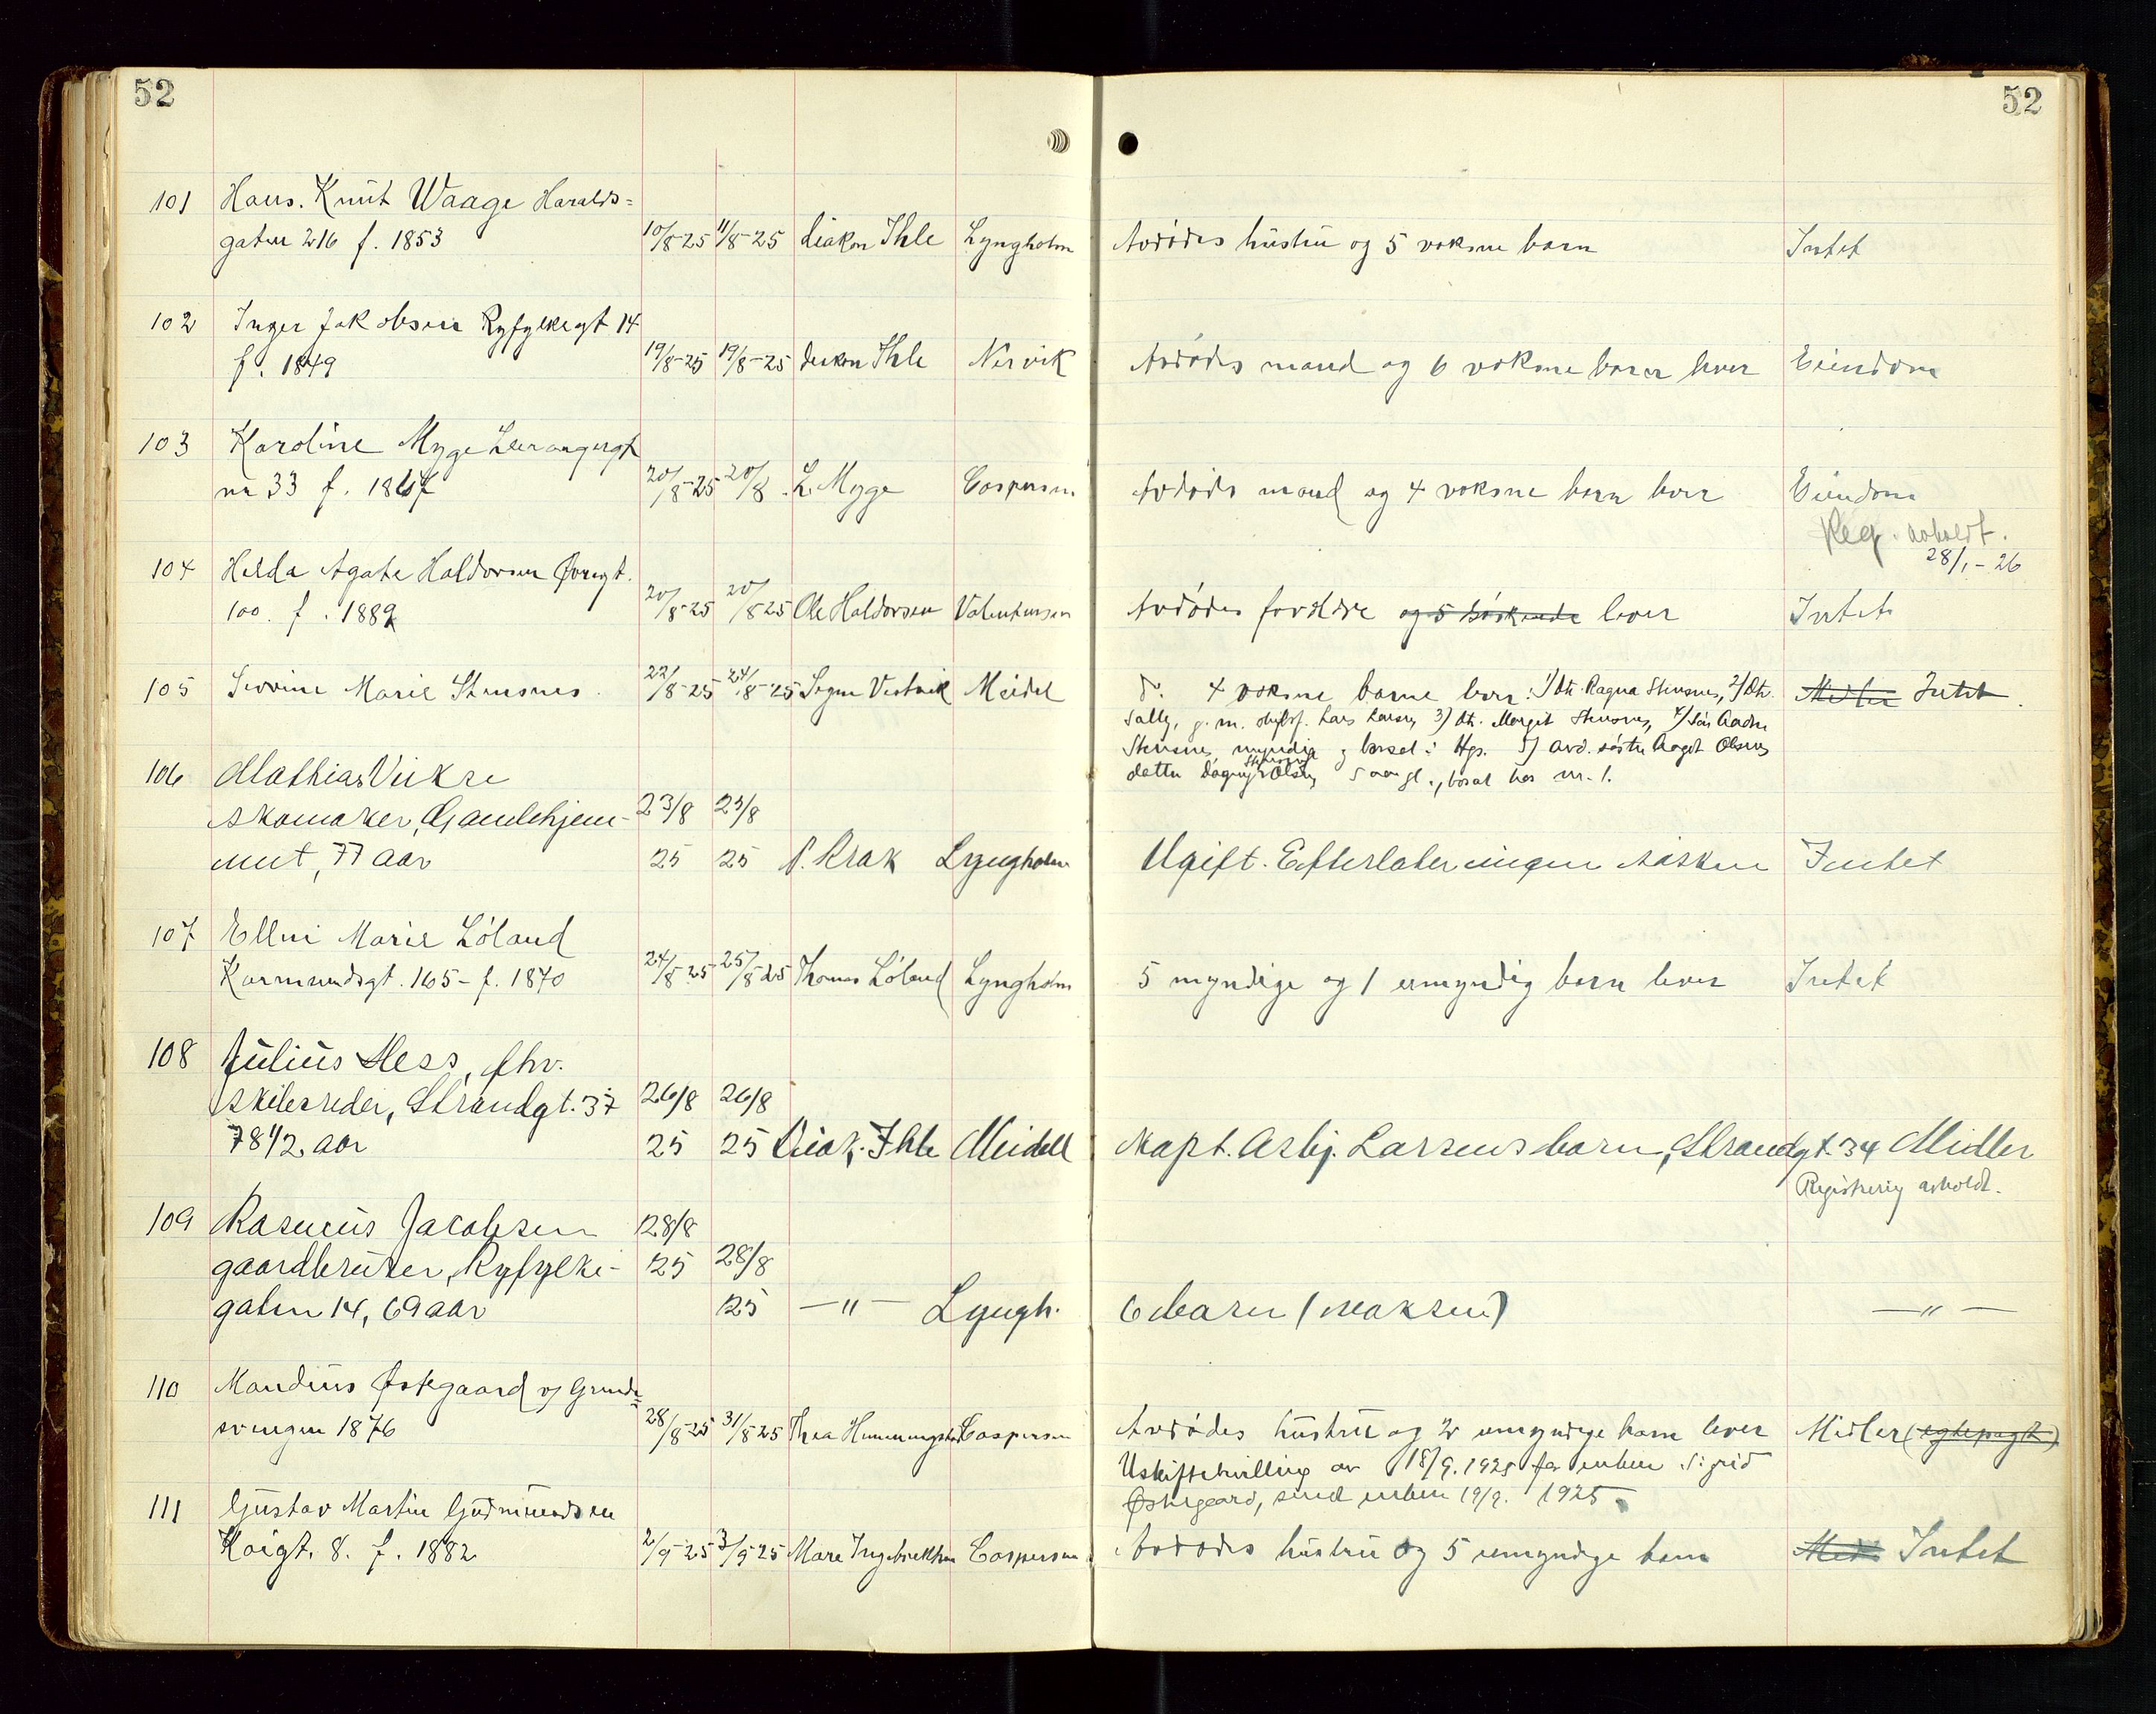 52
52
101 Hans. Knut Waage Haralds=
gaten 216 f. 1853 10/8-25 11/8-25 diakon Ihle Lyngholm Avdødes hustru og 5 voksne barn Intet
102 Inger Jakobsen Ryfylkegt 14
f. 1849 19/8-25 19/8-25 deakon Ihle Nervik Avdødes mand og 6 voksne barn lever Eiendom
103 Karoline Myge
nr 33 f. 20/8-25 20/8. L. Myge Caspersen Avdødes mand og 4 voksne barn lever Eiendom
Reg. avholdt.
28/1-26
104 Helda Agate Haldorsen Øvregt.
100. f. 1889 20/8-25 20/8 25 Ole Haldorsen Valentinsen Avdødes foreldre og 5 søskende lever Intet
105 Severine Marie Stensnes. 22/8-25 24/8-25 Signe Vestvik Meidel d. 4 voksne barn lever: 1) dtr. Ragna Stensnes, 2) Dtr. Midler Intet.
Sally, g. m. Lars Larsen, 3) dtr. Margit Stensnes, 4) Søn
Stensnes, myndig, bosat i Hgs. 5) avd. søster Aagot Olsens
datter Dagny Stensnes Olsen, 5 aar gl., bosat hos nr. 1.
106 Mathias Viikse
skomaker, Gamlehjem- 23/8 23/8
met, 77 aar 25 25 P. Krak Lyngholm Ugift. Efterlater ingen søsken Intet
107 Ellni Marie Löland
Karmsundsgt. 165- f. 1870 24/8-25 25/8-25 Thomas Löland Lyngholm 5 myndige og 1 umyndig barn lever Intet
108 Julius Hess, fhv.
skibsreder, Strandgt. 37 26/8 26/8
78 1/2 aar 25 25 Diak. Ihle Meidell Kapt. Asbj. Larsens barn, Strandgt. 34 Midler
Registrering avholdt.
109 Rasmus Jacobsen 28/8
gaardbruker, Ryfylke- 25 28/8
gaten 14, 69 aar 25 —"— Lyngh. 6 barn (voksne) —"—
110 Mandius Østegaard v/ Grinde=
svingen 1876 28/8-25 31/8-25 Thea Hemmingstad Caspersen Avdødes hustru og 2 umyndige barn lever Midler (egtepagt)
Uskiftebevilling av 18/9. 1925 for enken Sigrid
Østegaard, send enken 19/9. 1925.
111 Gustav Martin Gudmundsen
Kaigt. 8. f. 1882 2/9-25 3/9-25 Mare Ingebrektsen Caspersen Avdødes hustru og 5 umyndige barn Midl. Intet